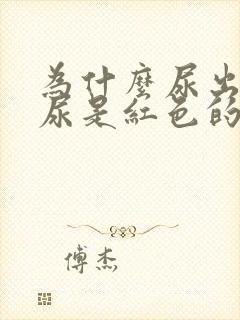 為什麼尿出
尿是紅色的
傅杰